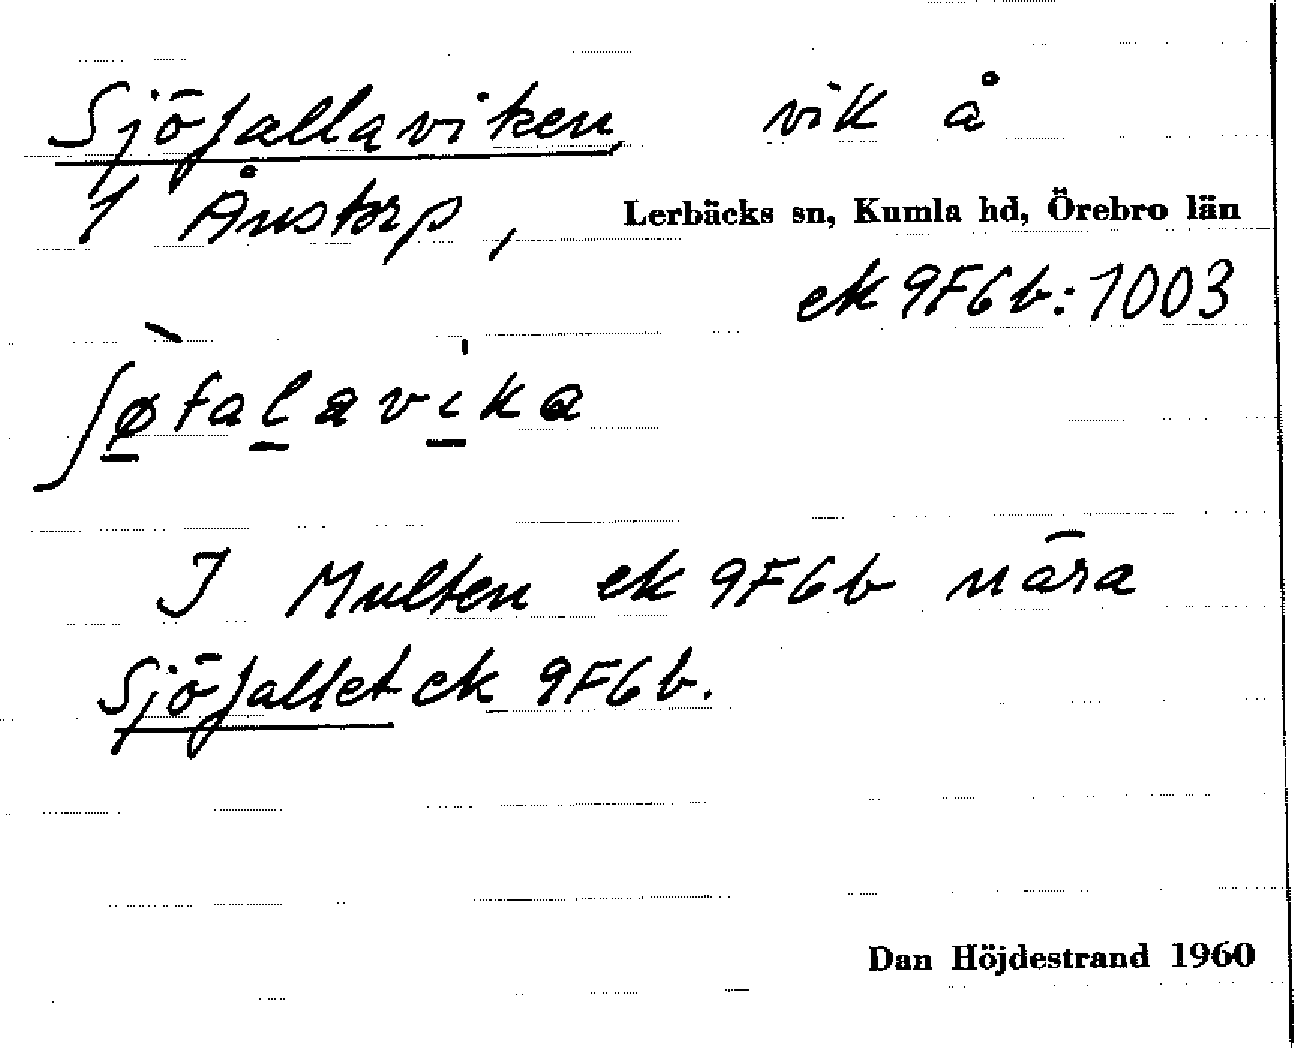 Sjöfallaviken, vik å
1 Ånstorp, Lerbäcks sn, Kumla hd, Örebro län
ek 9F6b:1003
ʃø̀falavika
I Multen ek 9F6b nära
Sjöfallet ek 9F6b.
Dan Höjdestrand 1960